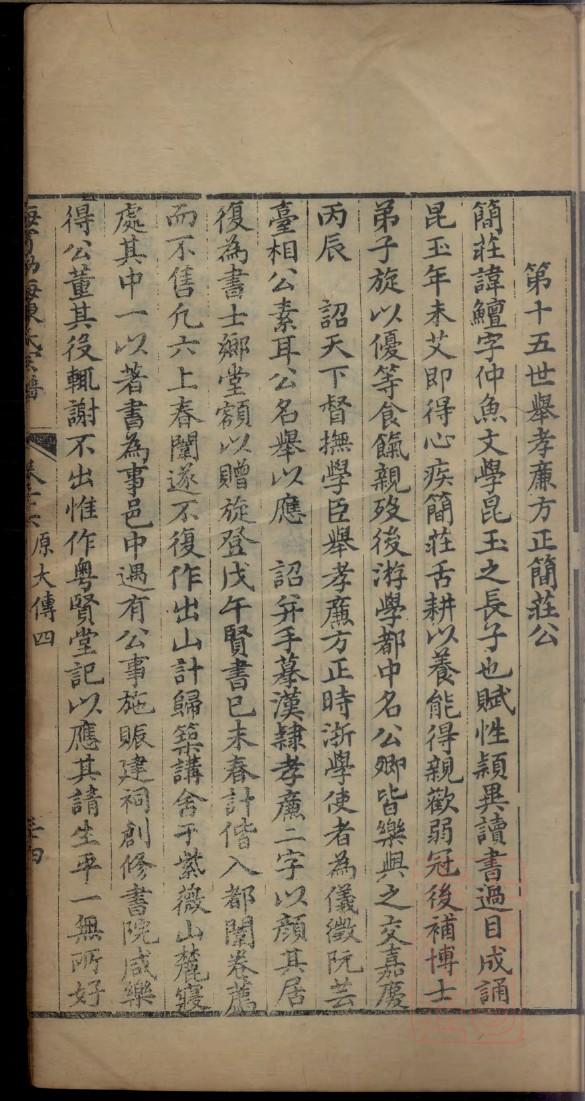 第十五世舉孝廉方正簡莊公
簡莊諱鱣字仲魚文學昆玉之長子也賦性穎異讀書過目成誦
昆玉年未艾即得心疾簡莊舌耕以養能得親歡弱冠後補博士
弟子旋以優等食餼親歿後游學都中名公卿皆樂與之交嘉慶
丙辰　詔天下督撫學臣舉孝廉方正時浙學使者為儀徵阮芸
臺相公素耳公名舉以應　詔并手摹漢隸孝廉二字以顏其居
復為書士鄉堂額以贈旋登戊午賢書已未春計偕入都闈卷薦
而不售凢六上春闈遂不復作出山計歸築講舍于紫薇山麓寢
處其中一以著書為事邑中遇有公事施賑建祠創修書院咸樂
得公董其役輒謝不出惟作粤賢堂記以應其請生平一無所好
海寧渤海陳氏宗譜　原大傳四